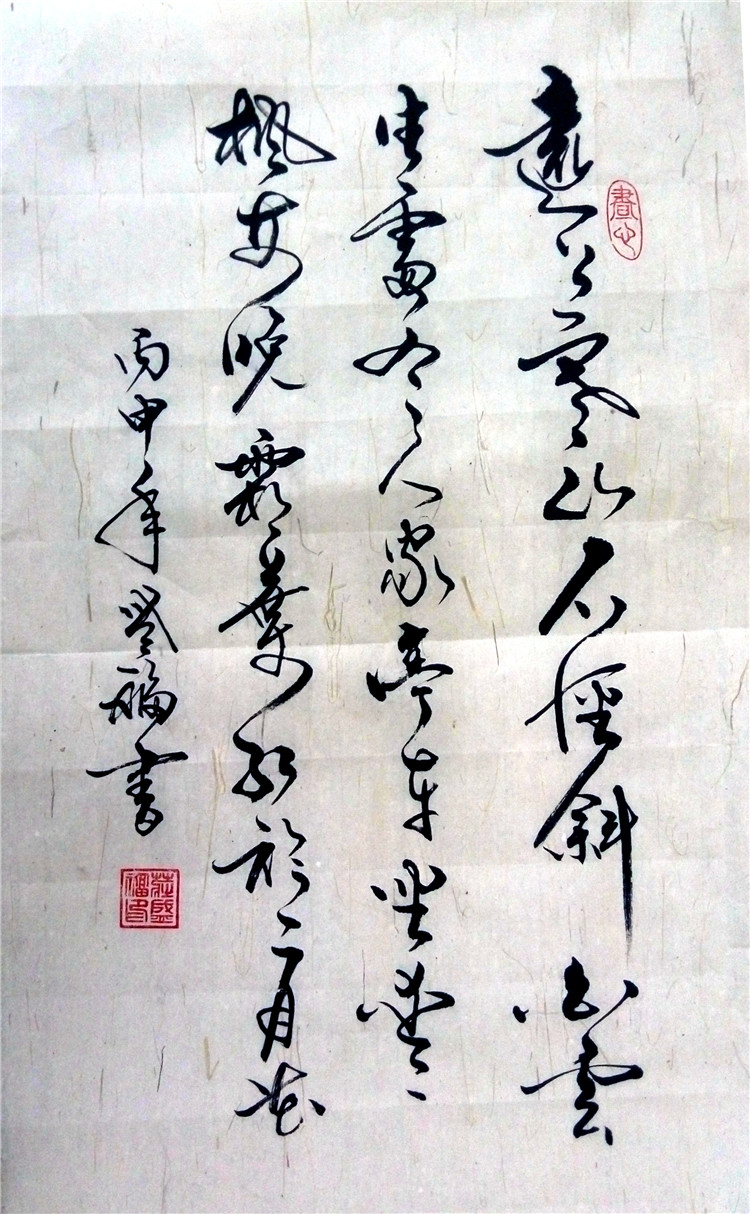 遠上寒山石徑斜白雲
生處有人家停車坐愛
楓林晚霜葉紅於二月花
丙申年盛福書
莊盛福印